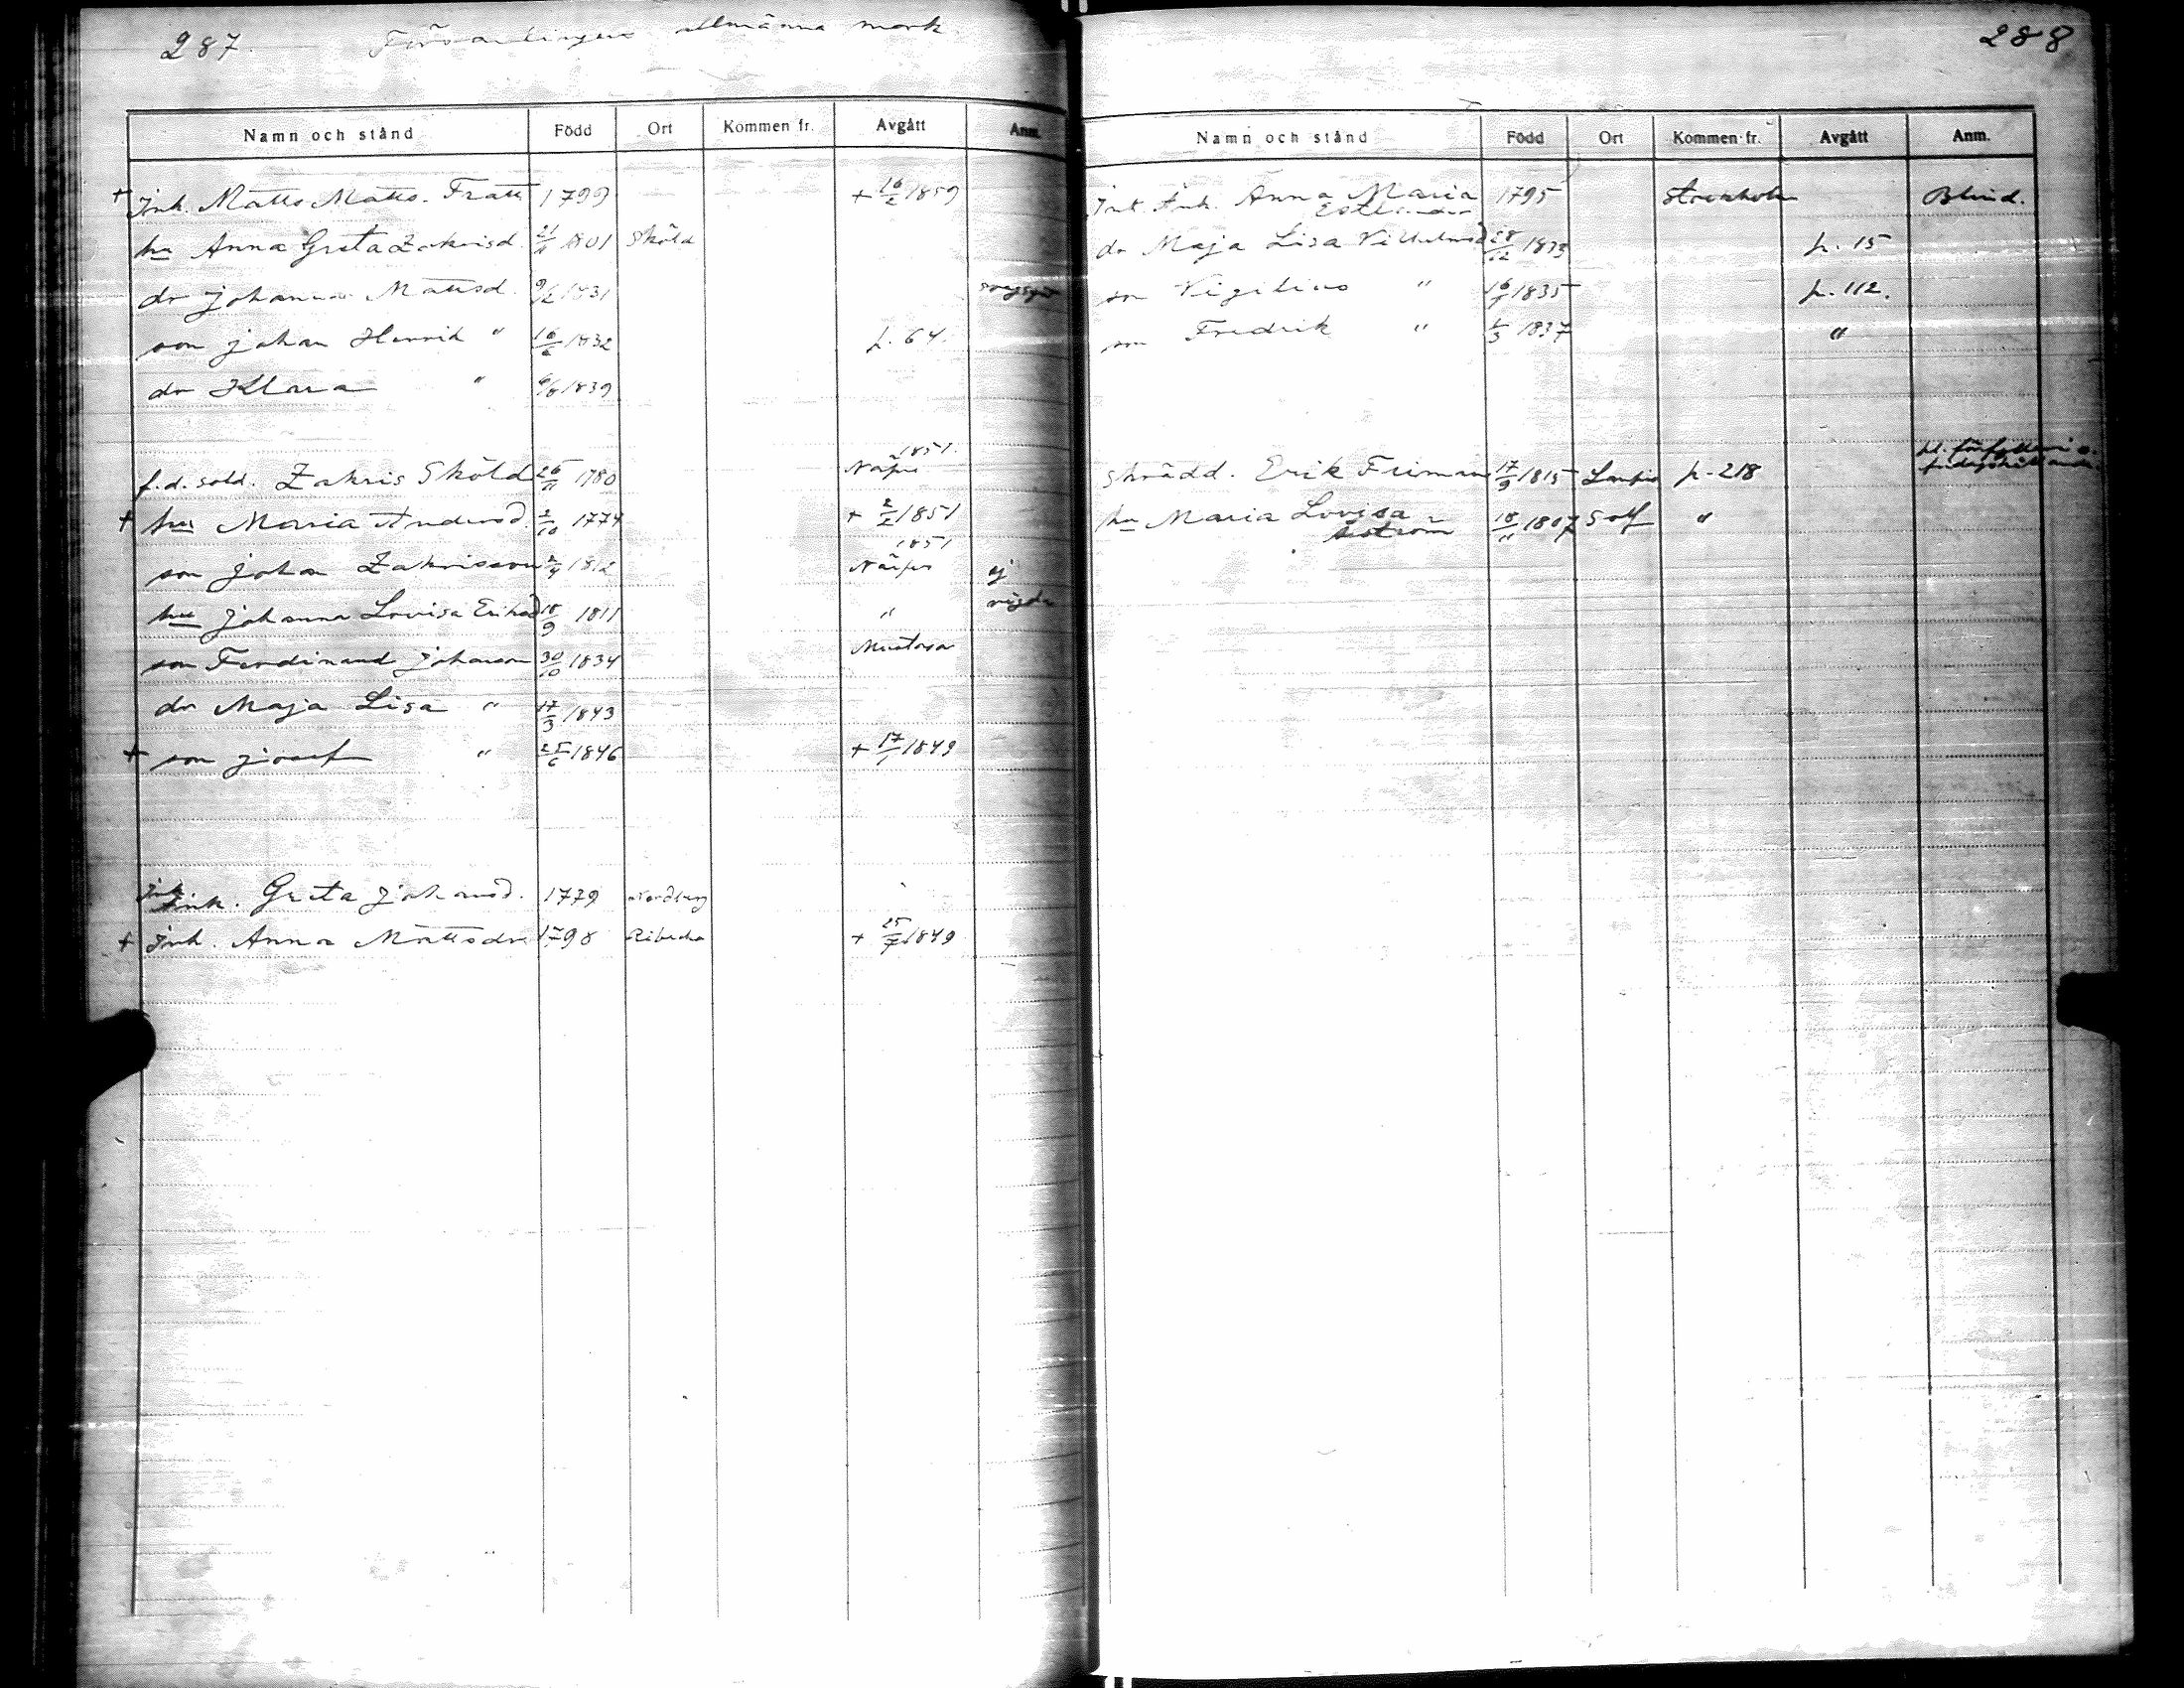 287. Församlingens allmänna mark.
Namn och stånd Född Ort Kommen fr. Avgått Anm.
+ Inh. Matts Matts. Fratt 1799 + 16/2 1859
hu Anna Greta Zakrisd. 1801 Sköld
dr Johanna Mattsd. 9/2 1831
son Johan Henrik " 16/2 1832 p. 64.
dr Klara " 6/8 1839
f.d. sold. Zakris Sköld 1780 Närpes 1851.
+ hu Maria Andersd. 2/10 1774 + 2/2 1851
son Johan Zakrisson 2/4 1812 Närpes 1851 ej
hu Johanna Lovisa Eriksd 18/9 1811 " vigda
son Ferdinand Johanson 30/10 1834 Mustasar
dr Maja Lisa " 17/3 1843
+ son Josef " 25/6 1846 + 17/1 1849
Ink. Greta Johansd. 1779
+ Inh. Anna Mattsdr 1798 + 25/7 1849
288
Namn och stånd Född Ort Kommen fr. Avgått Anm.
Inh. Änk. Anna Maria 1795 Stockholm Blind.
Estlander
dr Maja Lisa Vilhelmsd 28/12 1833 p. 15
son Vigilius " 1835 p. 112.
son Fredrik " 1837 "
Skrädd. Erik Friman 17/9 1815 p. 218
hu Maria Lovisa 18/11 1807 Solf "